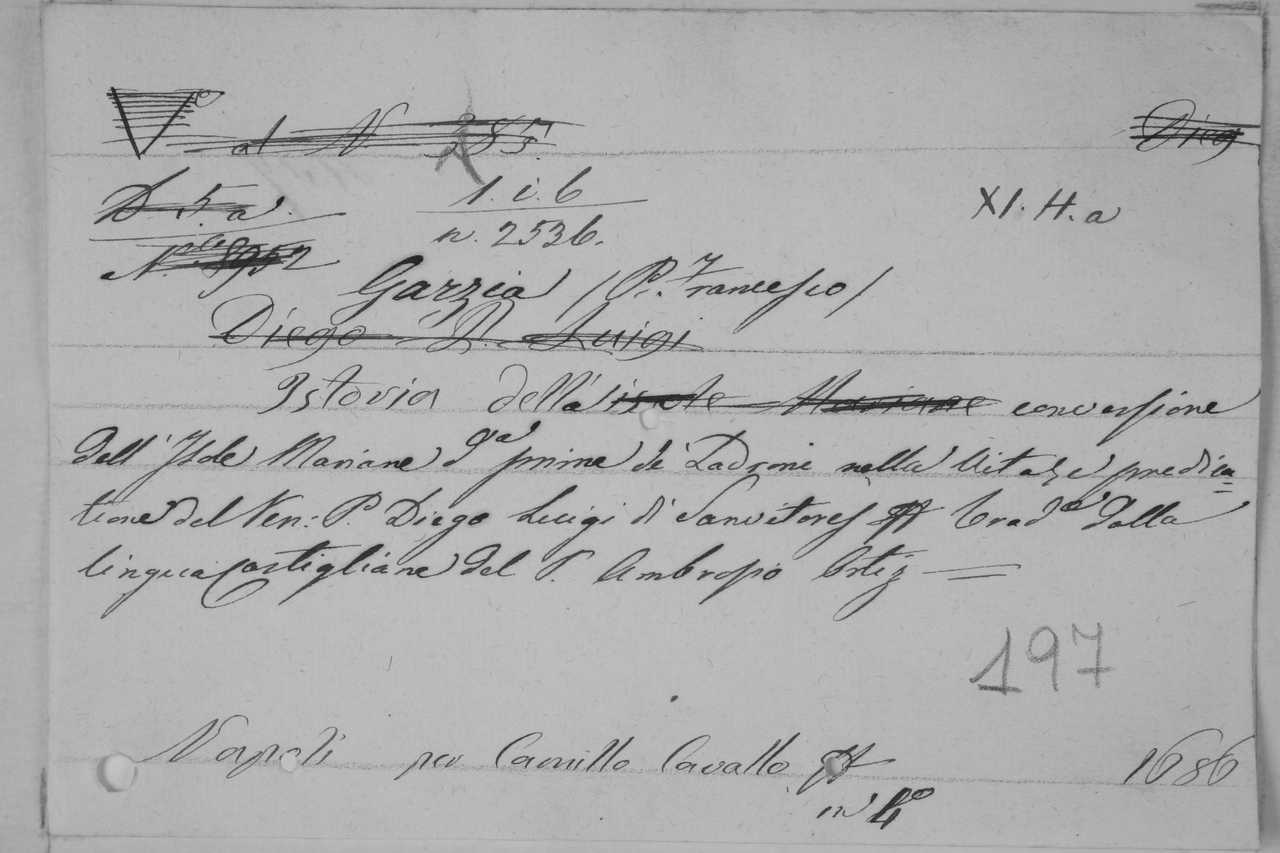 V al N 385 Dieg
D 5 a.
1. i. 6
XI. H. a
n. 2536.
N. 8952
Garzia / P. Francesco /
Diego P. Luigi
Istoria della isole Mariane conversione
dell' Isole Mariane d.ª prime de Ladroni nella Vita, e predica=
tione del Ven: P. Diego Luigi di Sanvitores Trad.ª dalla
lingua Castigliana del P. Ambrosio Ortiz
197
Napoli per Camillo Cavallo 1686
in 4º